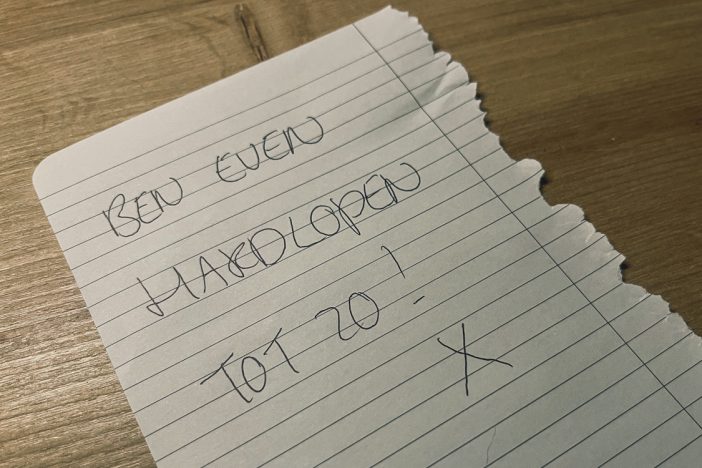 BEN EVEN
HARDLOPEN
TOT ZO!
X